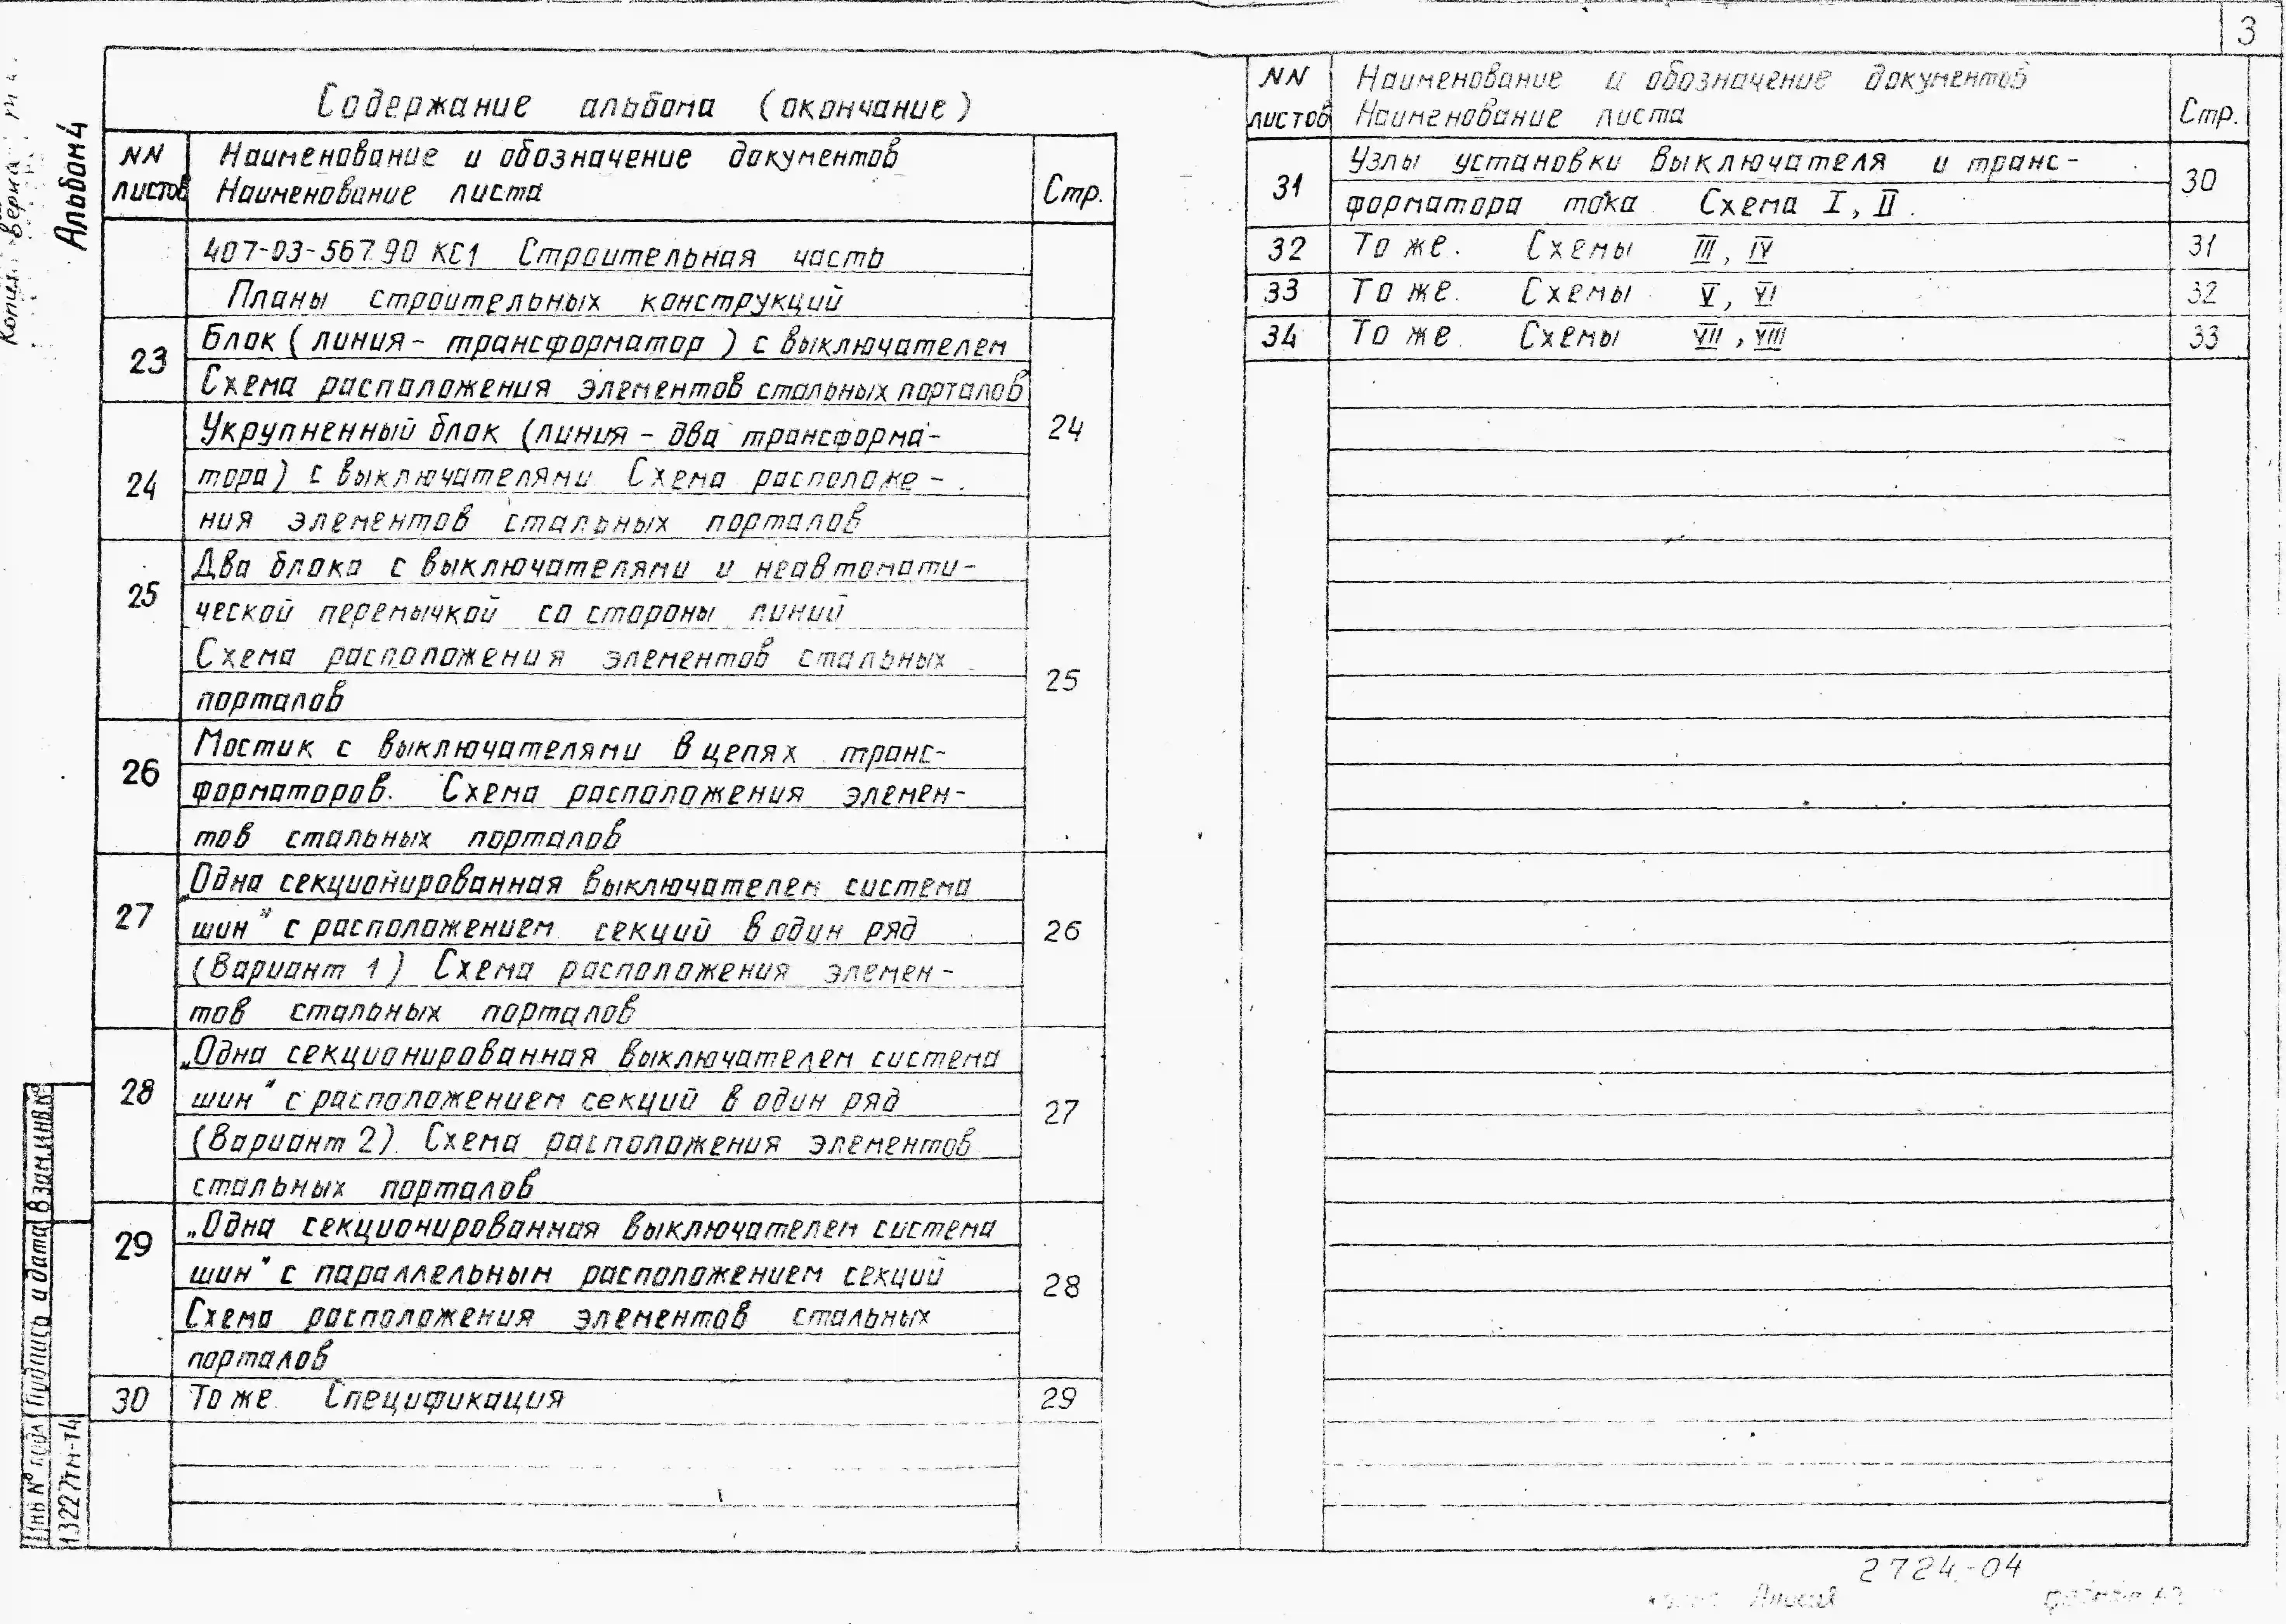 3
Альбом 4
Содержание альбома (окончание)
NN листов
Наименование и обозначение документов
Наименование листа
Стр.
407-03-567.90 КС1 Строительная часть
Планы строительных конструкций
23
Блок (линия - трансформатор) с выключателем
Схема расположения элементов стальных порталов
24
Укрупненный блок (линия - два трансформа-
24
тора) с выключателями Схема расположе-
ния элементов стальных порталов
25
Два блока с выключателями и неавтомати-
ческой перемычкой со стороны линий
Схема расположения элементов стальных
порталов
25
26
Мостик с выключателями в цепях транс-
форматоров. Схема расположения элемен-
тов стальных порталов
27
„Одна секционированная выключателем система
шин" с расположением секций в один ряд
26
(Вариант 1) Схема расположения элемен-
тов стальных порталов
28
„Одна секционированная выключателем система
шин" с расположением секций в один ряд
27
(Вариант 2). Схема расположения элементов
стальных порталов
29
„Одна секционированная выключателем система
шин" с параллельным расположением секций
28
Схема расположения элементов стальных
порталов
30
То же. Спецификация
29
NN листов
Наименование и обозначение документов
Наименование листа
Стр.
31
Узлы установки выключателя и транс-
форматора тока Схема I, II.
30
32
То же. Схемы III, IV
31
33
То же. Схемы V, VI
32
34
То же. Схемы VII, VIII
33
Взам.инв.№
Подпись и дата
Инв № подл
13227тм-т4
2724-04
формат А3